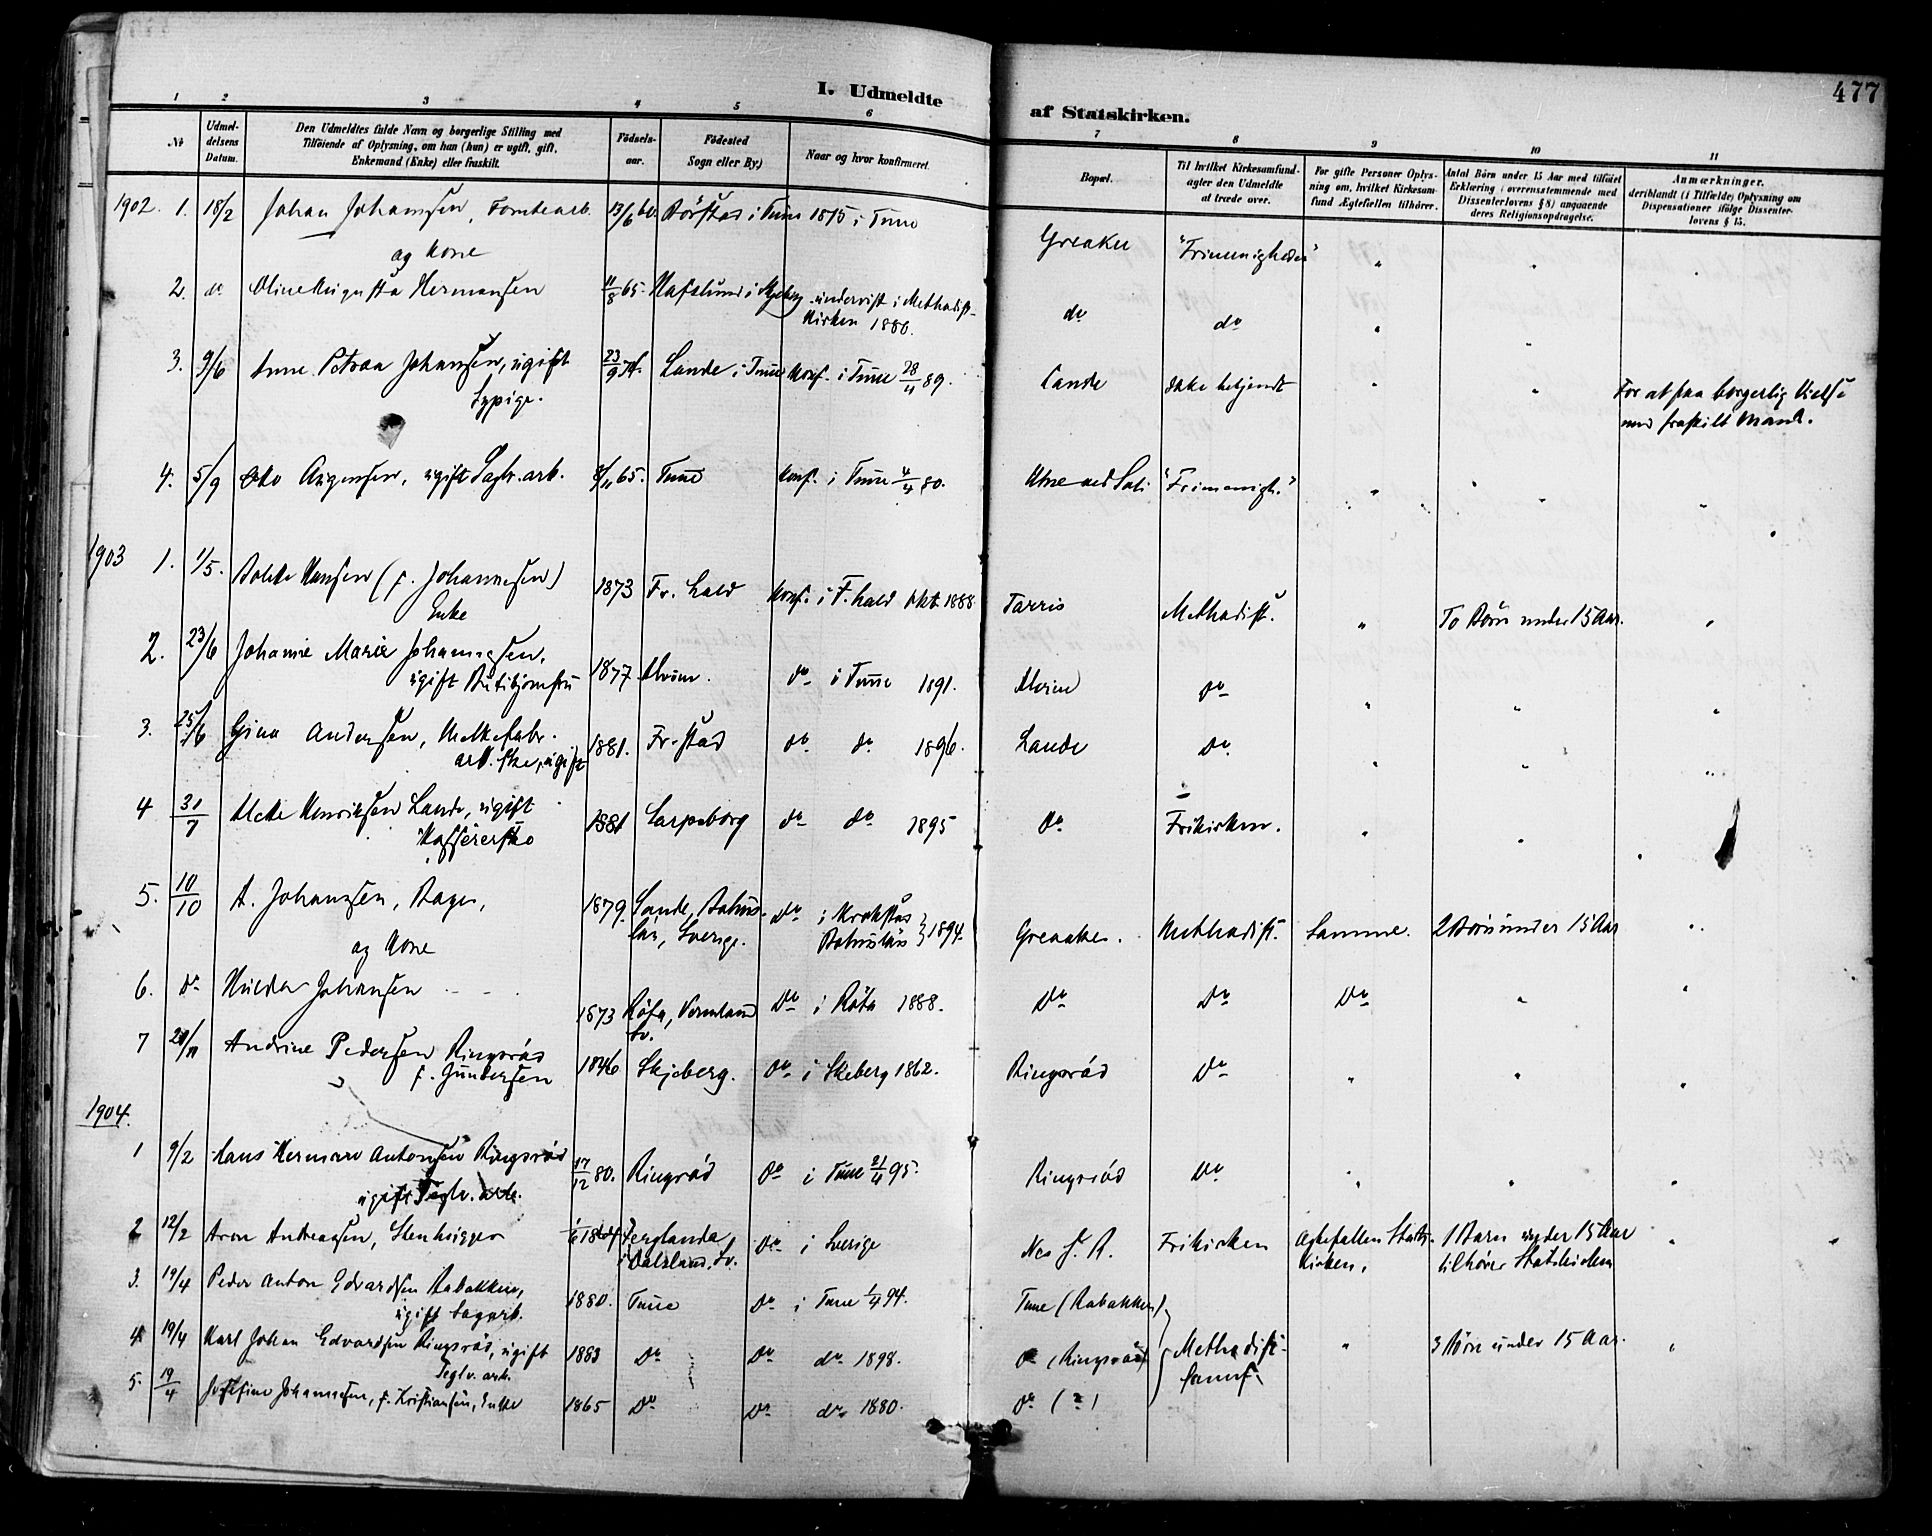 477
I. Udmeldte af Statskirken.
1 2 3 4 5 6 7 8 9 10 11
Nr
Udmel-
delsens
Datum.
Den Udmeldtes fulde Navn og borgerlige Stilling med
Tilföiende af Oplysning, om han (hun) er ugift, gift,
Enkemand (Enke) eller fraskilt.
Födsels-
aar.
Födested
Sogn eller By)
Naar og hvor konfirmeret.
Bopæl.
Til hvilket Kirkesamfund
agter den Udmeldte
at træde over.
For gifte Personer Oplys-
ning om, hvilket Kirkesam-
fund Ægtefællen tilhörer.
Antal Börn under 15 Aar med tilföiet
Erklæring (overensstemmende med
Dissenterlovens § 8) angaaende
deres Religionsopdragelse.
Anmærkninger.
deriblandt (i Tilfælde) Oplysning om
Dispensationer ifölge Dissenter-
lovens § 15.
1902. 1. 18/2 Johan Johansen, Tomtearb. 13/6 60. Börstad i Tune 1875 i Tune Greaker "Frimenigheden" " " "
og Kone
2. do Oline Augusta Hermansen 11/8 65. Hafslund i Skjeberg undervist i Methodist- do do " "
Kirken 1880.
3. 9/6 Anne Petrea Johansen, ugift 23/9 74. Lande i Tune Konf. i Tune 28/4 89. Lande ikke bekjendt " " For at faa borgerlig Vielse
Sypige. med fraskilt Mand.
4. 5/9 Otto Aagensen, ugift Sagbr.arb. 8/11 65. Tune Konf. i Tune 4/4 80. "Frimenigh." " " "
1903 1. 1/5. Bolette Hansen (f. Johannesen) 1873 Fr. hald Konf. i F. hald Okt. 1888 Tarris Methodist. " To Börn under 15 Aar. "
Enke
2. 23/6 Johanne Marie Johannesen, 1877 Alvim. do i Tune 1891. Alvim do " " "
ugift Butikjomfru
3. 25/6 Gina Andersen, 1881. Fr. stad do do 1896. Lande do " " "
arb.ske, ugift
4 31/7 Mette Henriksen Lande, ugift 1881 Sarpsborg do do 1895 do Frikirken. " " "
Kassererske
5. 10/10 A. Johansen, Bager, 1879. Sande, Bahus- do i Krokstad 1894. Greaaker. Methodist. Samme. 2 Börn under 15 Aar "
og Kone län, Sverige. Bohuslän
6. do Hulda Johansen 1873 Vermland do i 1888. do do do " "
Sv.
7 Andrine Pedersen Ringsröd 1846 Skjeberg. do i Skeberg 1862. Ringsröd do " " "
f. Gundersen
1904.
1 9/2 Hans Herman Antonsen Ringsröd 17/12 80. Ringsröd do i Tune 21/4 95. Ringsröd do " " "
ugift Teglv. arb.
2 12/2 Aron Andreassen, Stenhugger Jerglanda do i Sverige Frikirken Ægtefællen Stats- 1 Barn under 15 Aar "
i Dalsland, Sv. Kirken. tilhörer Statskirken
3. 19/4 Peder Anton Edvardsen Rabakken, 1880. Tune do i Tune 1/4 94. Tune (Rabakken)
ugift Sagarb.
4 19/4 Karl Johan Edvardsen Ringsröd, ugift 1883 do do do 1898. do (Ringsröd) Methodist- " 3 Börn under 15 Aar. "
Teglv. arb. samf.
5. 19/4 Josefine Johannesen, f. Kristiansen, Enke 1865 do do do 1880. do (?)